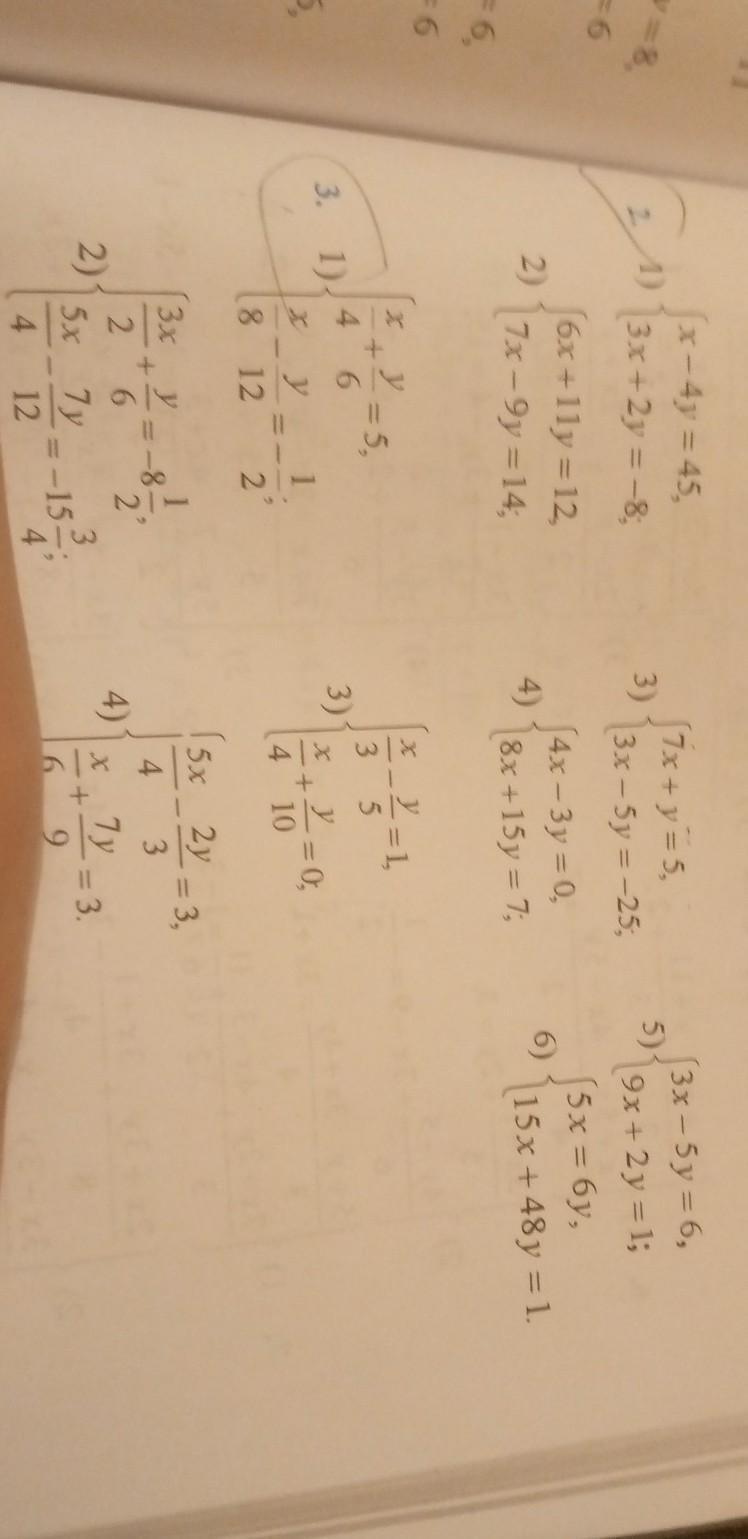 v = 8,
= 6
= 6,
= 6
2. 1) { x − 4y = 45,
3x + 2y = −8;
3) { 7x + y = 5,
3x − 5y = −25;
5) { 3x − 5y = 6,
9x + 2y = 1;
2) { 6x + 11y = 12,
7x − 9y = 14;
4) { 4x − 3y = 0,
8x + 15y = 7;
6) { 5x = 6y,
15x + 48y = 1.
3. 1) { x/4 + y/6 = 5,
x/8 − y/12 = −1/2;
3) { x/3 − y/5 = 1,
x/4 + y/10 = 0;
2) { 3x/2 + y/6 = −8 1/2,
5x/4 − 7y/12 = −15 3/4;
4) { 5x/4 − 2y/3 = 3,
x/6 + 7y/9 = 3.